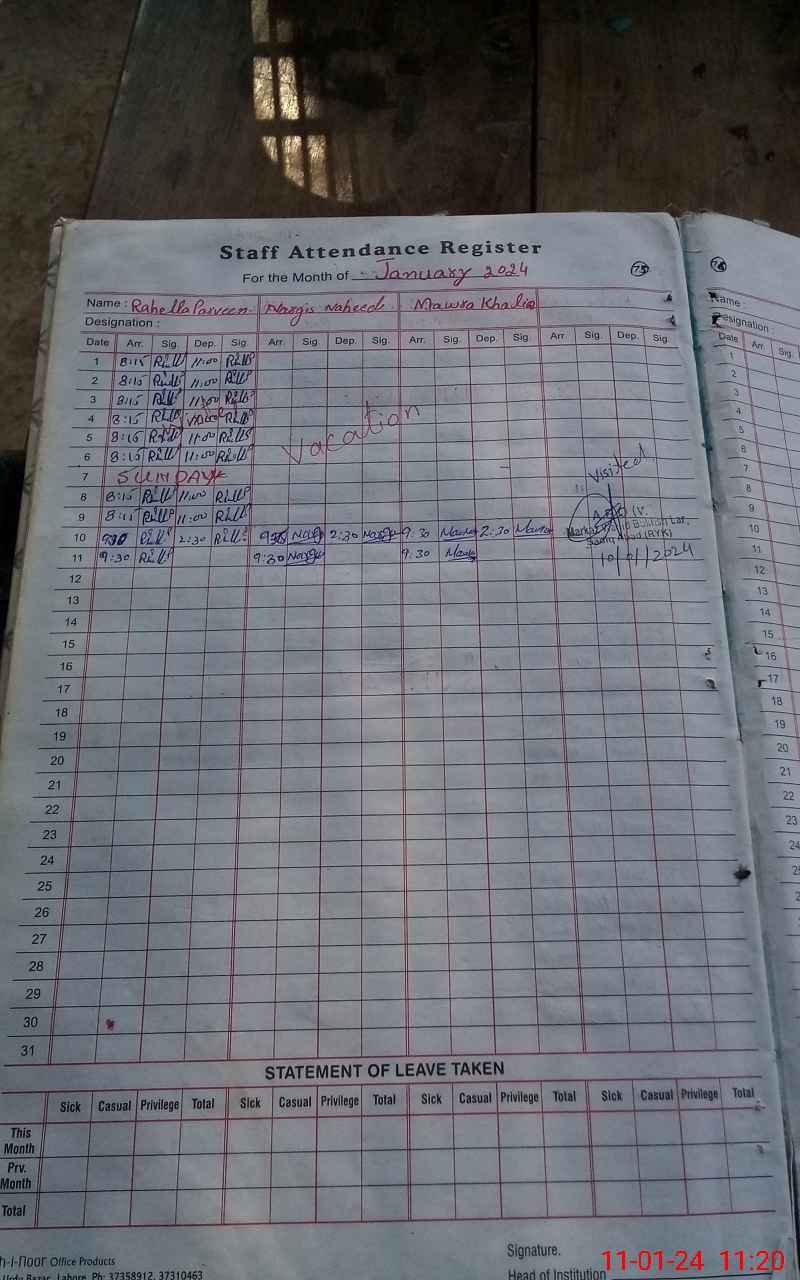 Staff Attendance Register
For the Month of January 2024 75
Name : Rahella Parveen Nargis Naheed Mawra Khalid
Designation :
Date Arr. Sig. Dep. Sig. Arr. Sig. Dep. Sig. Arr. Sig. Dep. Sig. Arr. Sig. Dep. Sig.
1 8:15 11:00
2 8:15 11:00
3 8:15 11:00
4 8:15
Vacation
5 8:15 11:00
6 8:15 11:00
7 SUNDAY
Visited
8 8:15 11:00
9 8:15 11:00
10 9:30 2:30 2:30 9:30 2:30
11 9:30 9:30 9:30
10/01/2024
12
13
14
15
16
17
18
19
20
21
22
23
24
25
26
27
28
29
30
31
STATEMENT OF LEAVE TAKEN
Sick Casual Privilege Total Sick Casual Privilege Total Sick Casual Privilege Total Sick Casual Privilege Total
This Month
Prv. Month
Total
Office Products
Urdu Bazar, Lahore. Ph: 37358912, 37310463
Signature.
Head of Institution
76
Name :
Designation :
Date Arr. Sig.
1
2
3
4
5
6
7
8
9
10
11
12
13
14
15
16
17
18
19
20
21
22
23
11-01-24 11:20